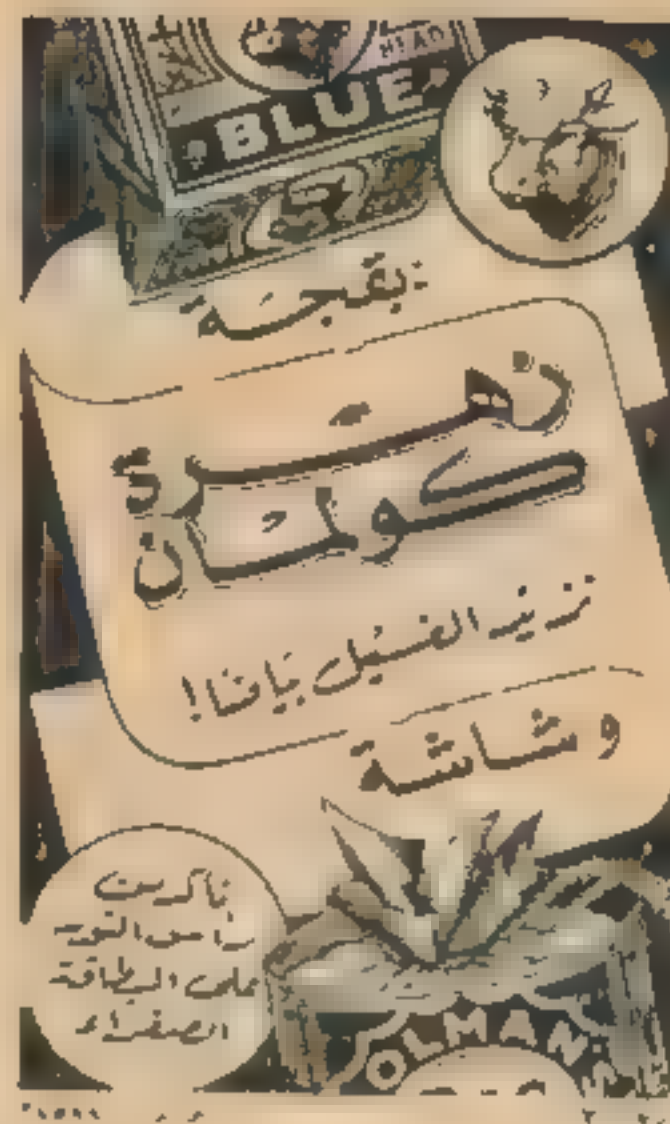 HEAD
BLUE
بقجة
زهرة
كولمان
تزيد الغسيل بياضا!
وشاشة
تأكد من
رأس الثور
على البطاقة
الصفراء
OLMAN